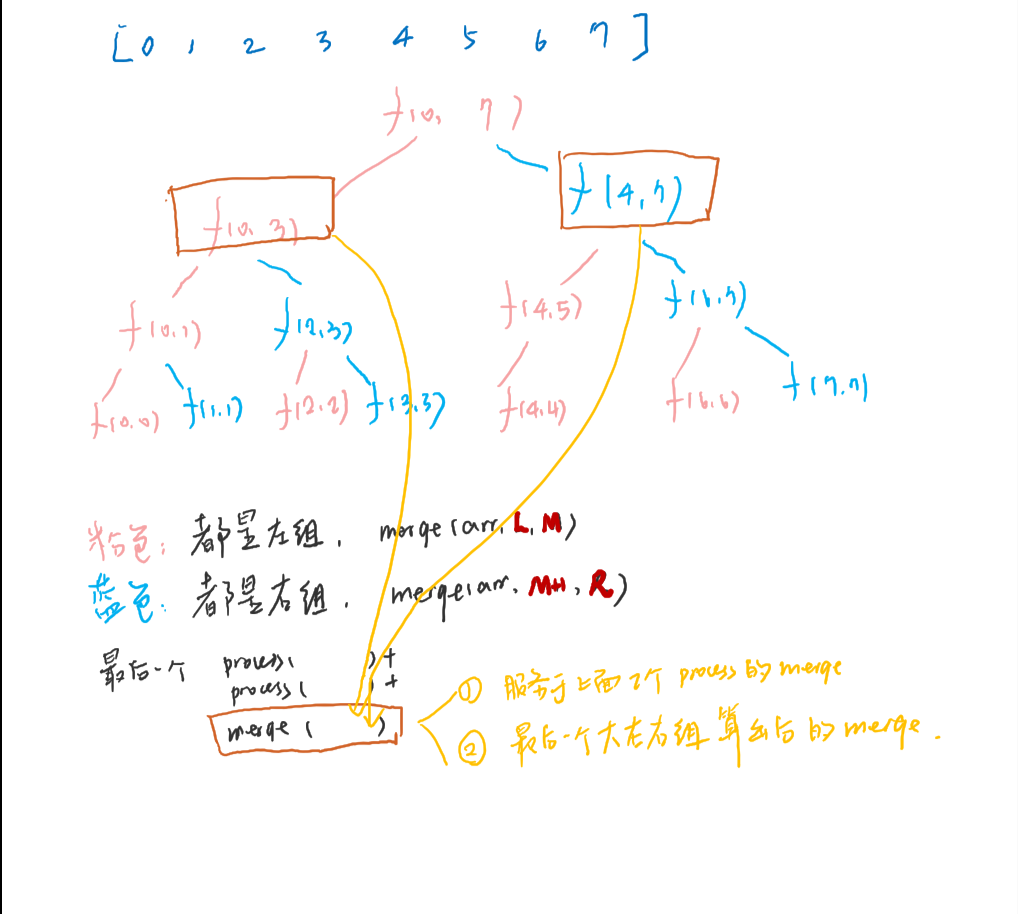 [0 1 2 3 4 5 6 7]
f(0, 7)
f(0, 3) f(4, 7)
f(0,1) f(2,3) f(4,5) f(6,7)
f(0,0) f(1,1) f(2,2) f(3,3) f(4,4) f(6,6) f(7,7)
粉色: 都是左组, merge(arr, L, M)
蓝色: 都是右组, merge(arr, M+1, R)
最后一个 process( )+
process( )+
merge ( )
① 服务于上面2个 process的merge
② 最后一个大左右组算出后的merge.